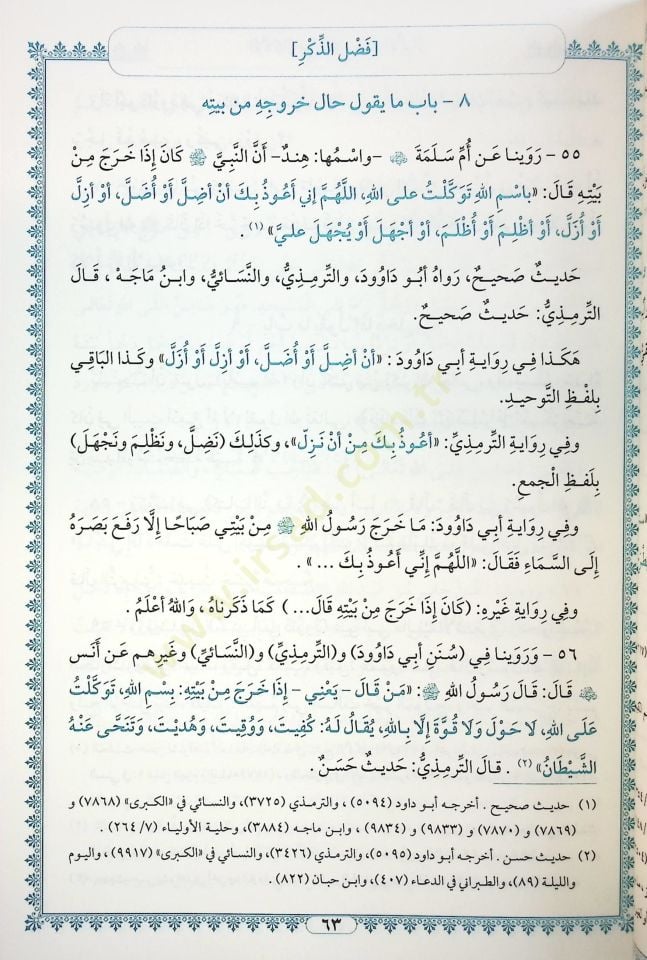 [فَضْل الذِّكْرِ]
٨ - باب ما يقول حال خروجِهِ من بيتِه
٥٥ - رَوَينا عَن أُمِّ سَلَمَةَ ﵂ -واسْمُها: هِندٌ- أَنَّ النَّبِيَّ ﷺ كَانَ إِذَا خَرَجَ مِنْ
بَيْتِهِ قَالَ: «باسْمِ اللهِ تَوَكَّلْتُ على اللهِ، اللَّهُمَّ إني أَعُوذُ بِكَ أنْ أضِلَّ أَوْ أُضَلَّ، أوْ أزِلَّ
أَوْ أُزَلَّ، أَوْ أَظْلِمَ أَوْ أُظْلَمَ، أوْ أجْهَلَ أَوْ يُجْهَلَ عليَّ» (١) .
حَديثٌ صَحيحٌ، رَواهُ أبُو دَاوُودَ، والتِّرمِذِيُّ، والنَّسَائيُّ، وابنُ مَاجَهْ ، قَالَ
التِّرمِذيُّ: حَديثٌ صَحيحٌ.
هَكَذا فِي رِوَايةِ أبي دَاوُودَ : «أنْ أضِلَّ أَوْ أُضَلَّ، أَوْ أزِلَّ أَوْ أُزَلَّ» وكَذا البَاقي
بِلفْظِ التَّوحيدِ.
وفِي رِوايةِ التِّرمِذيِّ: «أعُوذُ بِكَ مِنْ أنْ نَزِلّ»، وكذَلِكَ (نَضِلَّ، ونَظْلِمَ ونَجْهَلَ)
بِلَفظِ الجمعِ.
وفِي رِوَايةِ أبي دَاوُودَ: مَا خَرجَ رَسُولُ اللهِ ﷺ مِنْ بَيْتِي صَبَاحًا إلَّا رَفعَ بَصَرَهُ
إلَى السَّمَاءِ فَقَالَ: «اللَّهُمَّ إنِّي أَعُوذُ بِكَ ... » .
وفِي رِوايةِ غَيرِهِ: (كَانَ إِذَا خَرَجَ مِنْ بَيْتِهِ قَالَ... ) كَمَا ذَكَرناهُ ، واللهُ أعْلمُ .
٥٦ - وَرَوَينا فِي (سُنَنِ أبي دَاوُودَ) و(التِّرمِذيِّ) و(النَّسَائيِّ) وغَيرِهم عَن أَنَسٍ
﵁ قَالَ: قَالَ رَسُولُ اللهِ ﷺ : «مَنْ قَالَ - يَعْنِي - إِذَا خَرَجَ مِنْ بَيْتِهِ: بِسْمِ اللهِ، تَوَكَّلْتُ
عَلَى اللهِ، لَا حَوْلَ وَلَا قُوَّةَ إِلَّا بِاللهِ، يُقَالُ لَهُ: كُفِيتَ، وَوُقِيتَ، وَهُدِيْتَ، وَتَنَحَّى عَنْهُ
الشَّيْطَانُ» (٢) . قَالَ التِّرمِذيُّ: حَديثٌ حَسَنٌ .
(١) حديث صحيح . أخرجه أبو داود (٥٠٩٤) ، والترمذي (٣٧٢٥)، والنسائي في «الكبرى» (٧٨٦٨) و
(٧٨٦٩) و (٧٨٧٠) و (٩٨٣٣) و (٩٨٣٤) ، وابن ماجه (٣٨٨٤)، وحلية الأولياء (٢٦٤/٧).
(٢) حديث حسن . أخرجه أبو داود (٥٠٩٥)، والترمذي (٣٤٢٦)، والنسائي في «الكبرى» (٩٩١٧)، واليوم
والليلة (٨٩)، والطبراني في الدعاء (٤٠٧)، وابن حبان (٨٢٢).
٦٣
www.irsad.com.tr